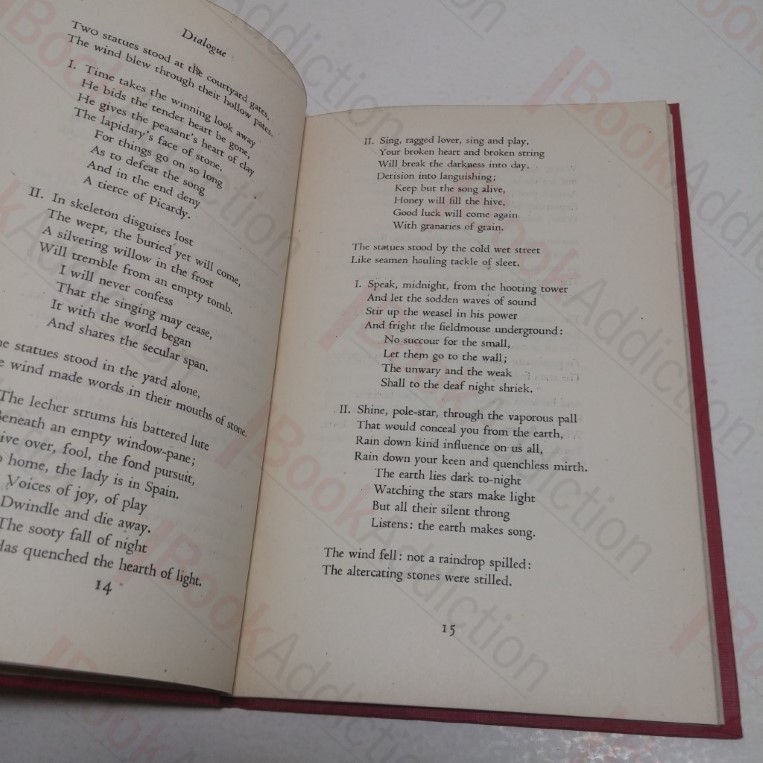 Dialogue
Two statues stood at the courtyard gates,
The wind blew through their hollow pates.
I. Time takes the winning look away
He bids the tender heart be gone,
He gives the peasant's heart of clay
The lapidary's face of stone.
For things go on so long
As to defeat the song
And in the end deny
A tierce of Picardy.
II. In skeleton disguises lost
The wept, the buried yet will come,
A silvering willow in the frost
Will tremble from an empty tomb.
I will never confess
That the singing may cease,
It with the world began
And shares the secular span.
statues stood in the yard alone,
wind made words in their mouths of stone.
The lecher strums his battered lute
Beneath an empty window-pane;
over, fool, the fond pursuit,
home, the lady is in Spain.
Voices of joy, of play
Dwindle and die away.
The sooty fall of night
Has quenched the hearth of light.
14
II. Sing, ragged lover, sing and play,
Your broken heart and broken string
Will break the darkness into day,
Derision into languishing;
Keep but the song alive,
Honey will fill the hive,
Good luck will come again
With granaries of grain.
The statues stood by the cold wet street
Like seamen hauling tackle of sleet.
I. Speak, midnight, from the hooting tower
And let the sodden waves of sound
Stir up the weasel in his power
And fright the fieldmouse underground:
No succour for the small,
Let them go to the wall;
The unwary and the weak
Shall to the deaf night shriek.
II. Shine, pole-star, through the vaporous pall
That would conceal you from the earth,
Rain down kind influence on us all,
Rain down your keen and quenchless mirth.
The earth lies dark to-night
Watching the stars make light
But all their silent throng
Listens: the earth makes song.
The wind fell: not a raindrop spilled:
The altercating stones were stilled.
15
BookAddiction